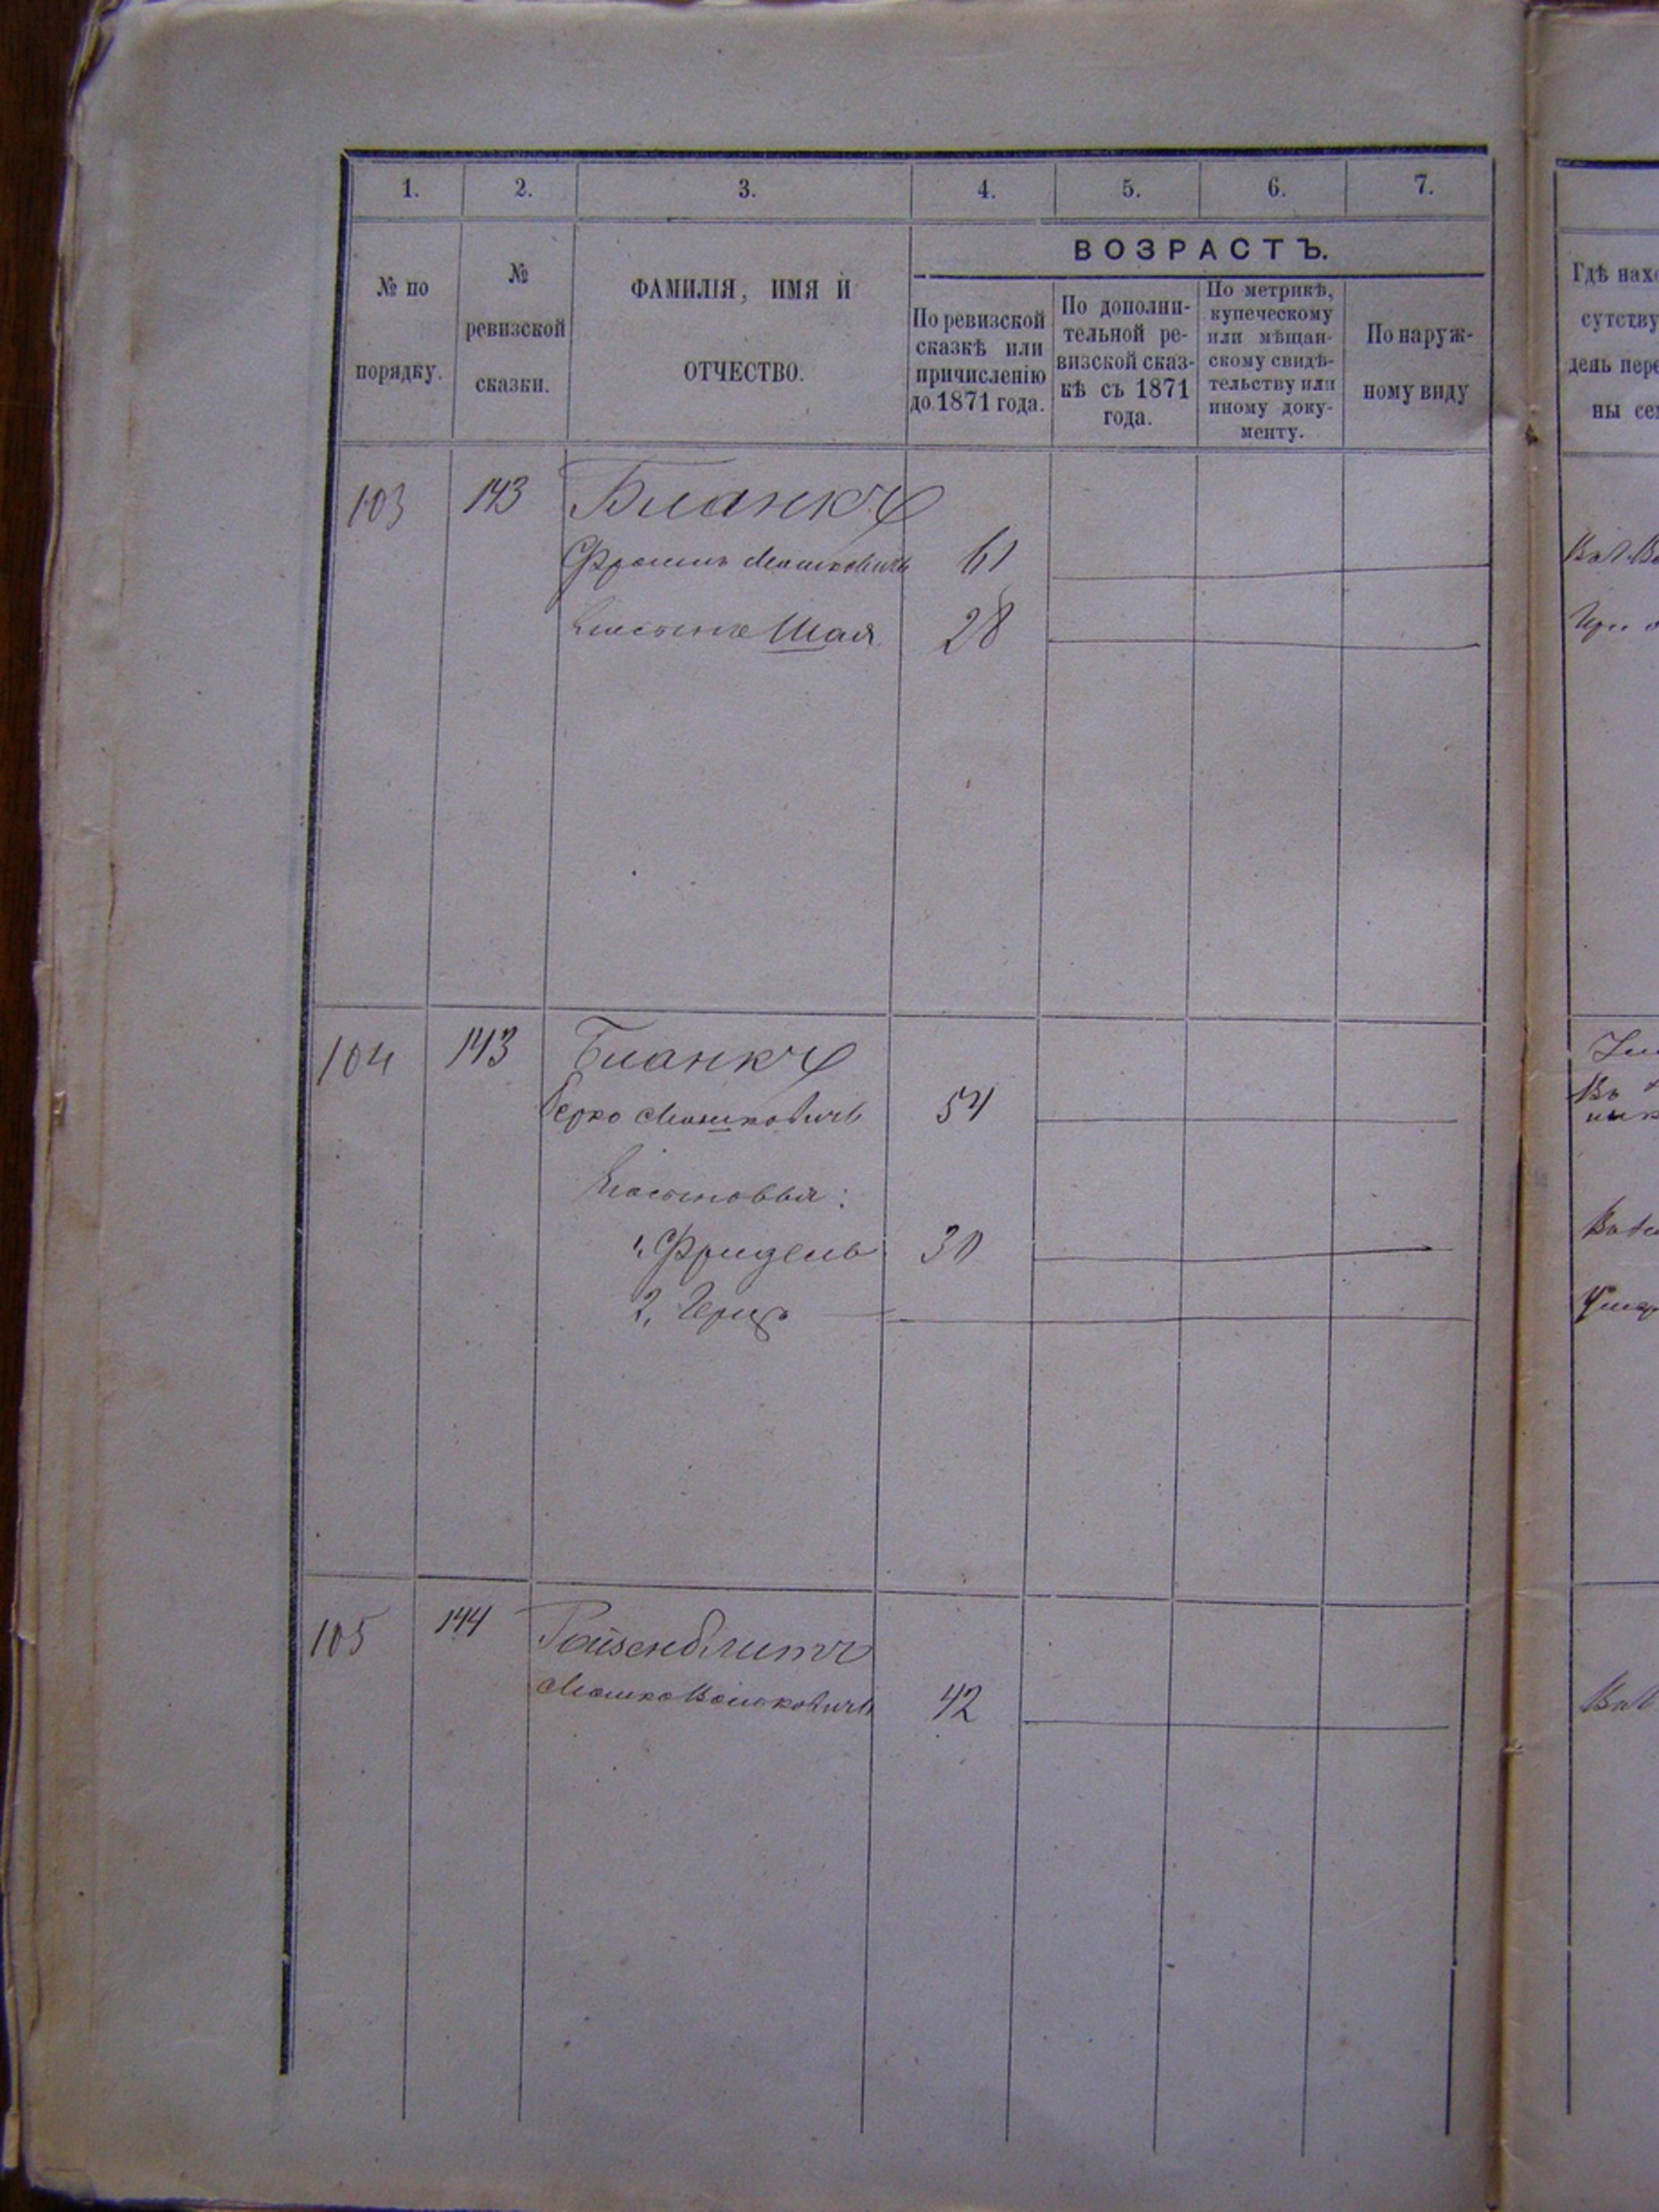 1. 2. 3. 4. 5. 6. 7.
№ по
порядку.
№
ревизской
сказки.
ФАМИЛІЯ, ИМЯ И
ОТЧЕСТВО.
ВОЗРАСТЪ.
По ревизской
сказкѣ или
причисленію
до 1871 года.
По дополни-
тельной ре-
визской сказ-
кѣ съ 1871
года.
По метрикѣ,
купеческому
или мѣщан-
скому свидѣ-
тельству или
иному доку-
менту.
По наруж-
ному виду
Гдѣ
ны
103 143 Бланкъ
Мошковичъ 61
Шая 28
104 143 Бланкъ
Берко Мошковичъ 54
Его сыновья:
1, Фридель 30
2, Герцъ
105 144 Райзенблитъ
Мошко Волковичъ 42